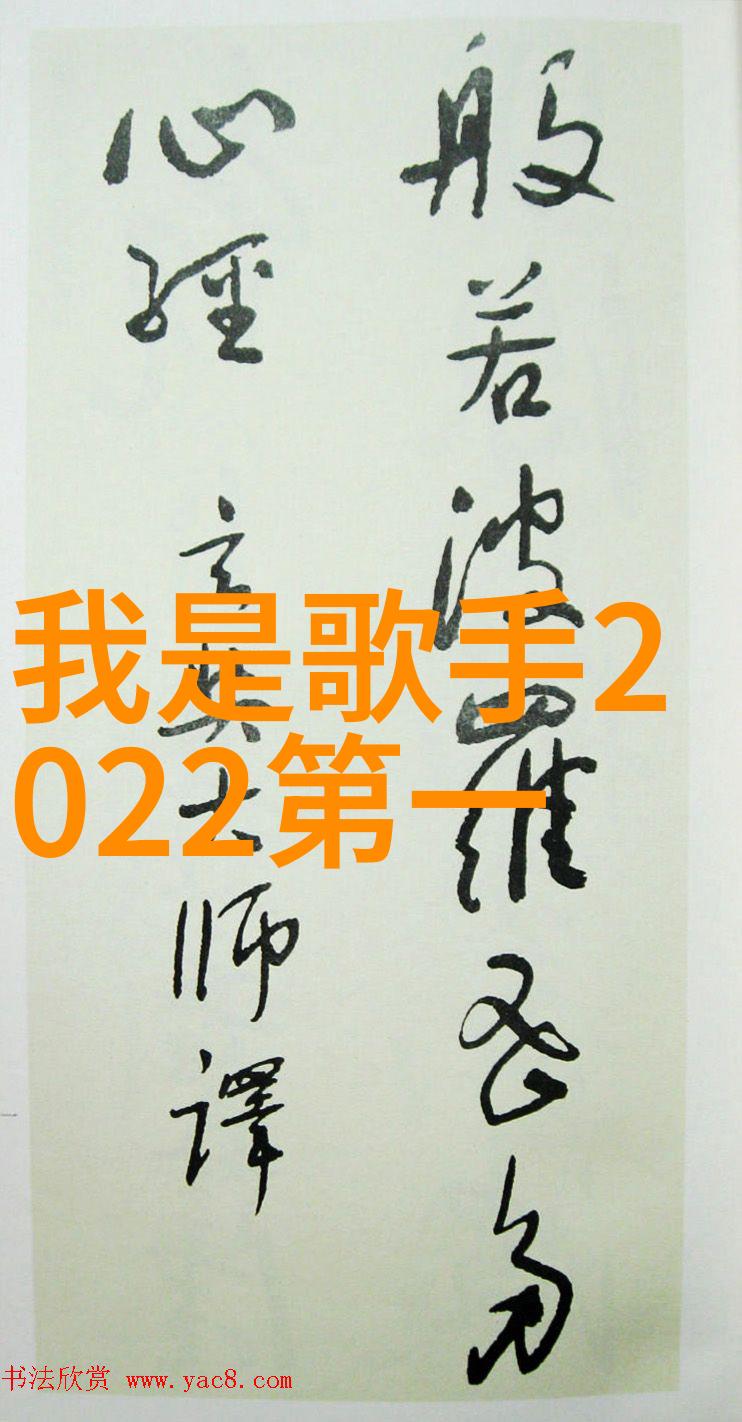 般若波羅蜜多
心經 玄奘大师譯
我是歌手2
022第一
书法欣赏 www.yac8.com